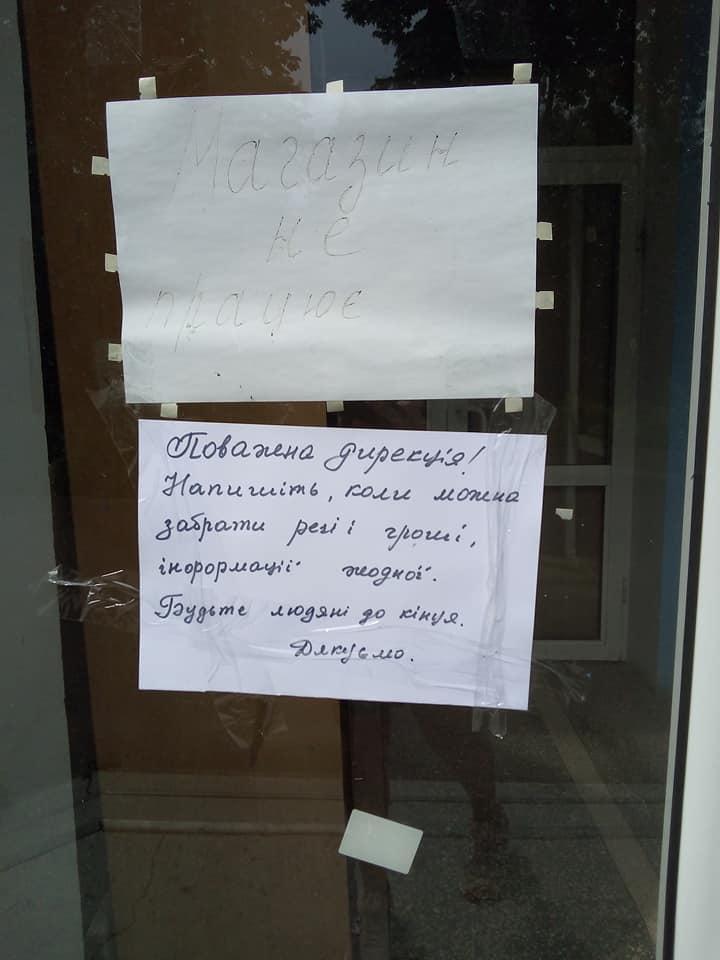 Магазин
не
працює
Поважна дирекція!
Напишіть, коли можна
забрати речі і гроші,
інформації жодної.
Будьте людяні до кінця.
Дякуємо.